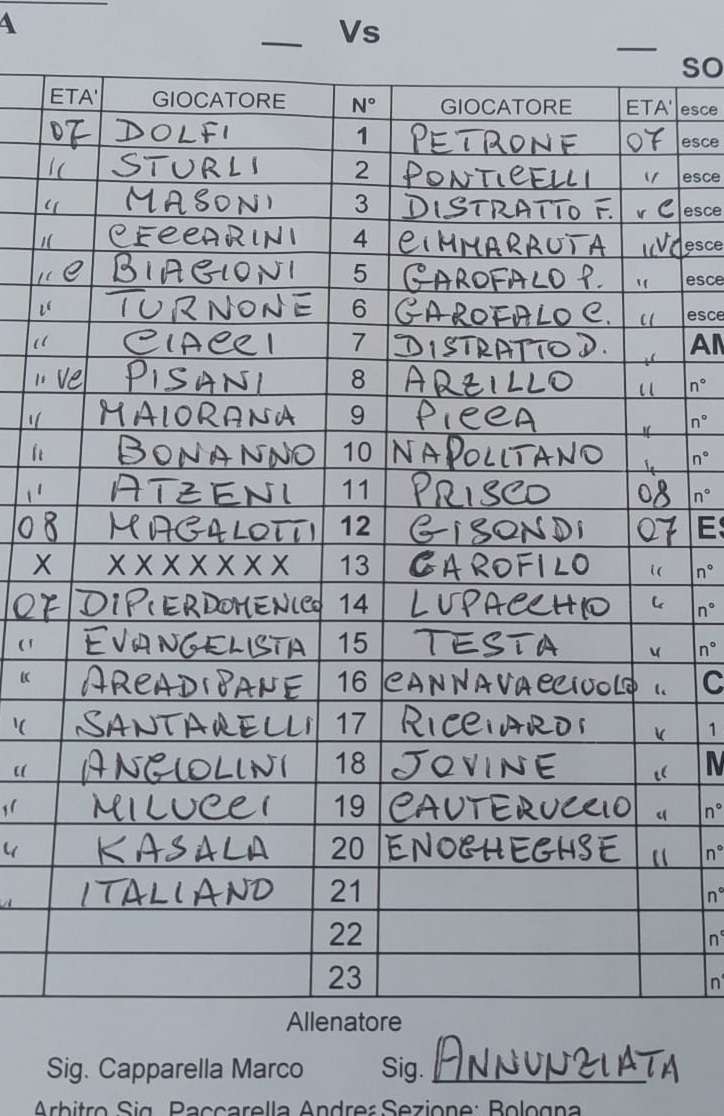 A
__ Vs __
SO
ETA' GIOCATORE N° GIOCATORE ETA' esce
07 DOLFI 1 PETRONE 07 esce
" STURLI 2 PONTICELLI " esce
" MASONI 3 DISTRATTO F. " C esce
" CECCARINI 4 CIMMARRUTA " VC esce
" C BIAGIONI 5 GAROFALO P. " esce
" TURNONE 6 GAROFALO C. " esce
" CIACCI 7 DISTRATTO D. " AM
" VC PISANI 8 ARZILLO " n°
" MAIORANA 9 PICCA " n°
" BONANNO 10 NAPOLITANO " n°
" ATZENI 11 PRISCO 08 n°
08 MAGALOTTI 12 GISONDI 07 ES
X XXXXXXX 13 GAROFILO " n°
07 DIPIERDOMENICO 14 LUPACCHIO " n°
" EVANGELISTA 15 TESTA " n°
" ARCADIPANE 16 CANNAVACCIUOLO " C
" SANTARELLI 17 RICCIARDI " 1
" ANGIOLINI 18 JOVINE " M
" MILUCCI 19 CAUTERUCCIO " n°
" KASALA 20 ENOGHEGHSE " n°
" ITALIANO 21 n°
22 n°
23 n°
Allenatore
Sig. Capparella Marco Sig. ANNUNZIATA
Arbitro Sig. Paccarella Andrea Sezione: Bologna